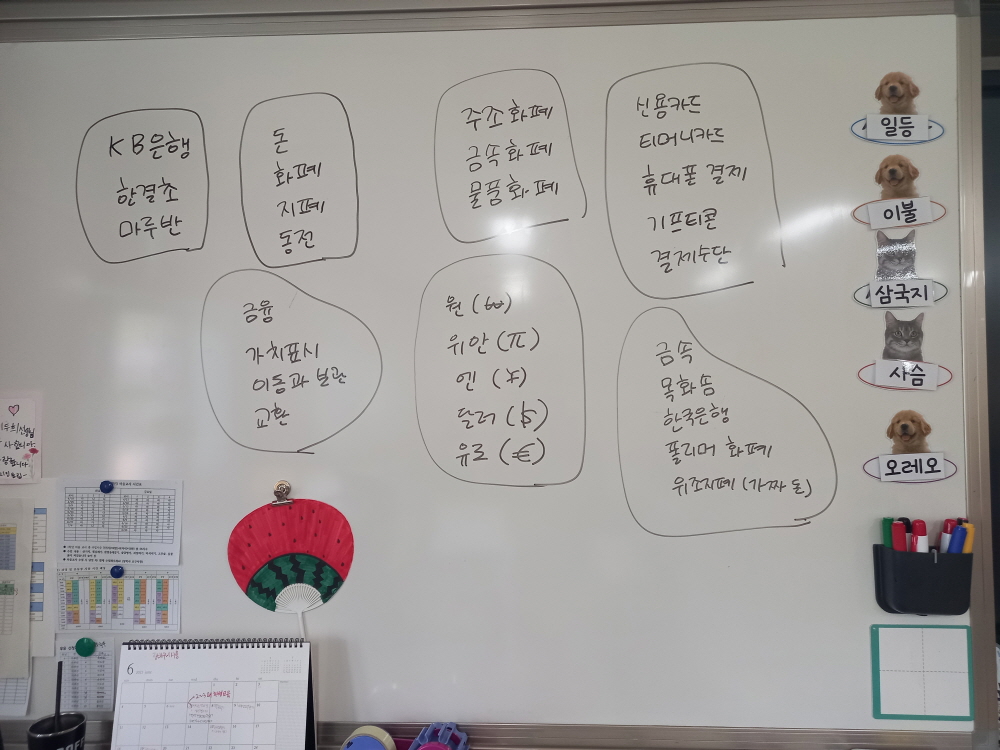 KB은행
한결초
마루반
돈
화폐
지폐
동전
주조화폐
금속화폐
물품화폐
신용카드
티머니카드
휴대폰 결제
기프티콘
결제수단
금융
가치표시
이동과 보관
교환
원 (₩)
위안 (元)
엔 (¥)
달러 ($)
유로 (€)
금속
목화송
한국은행
폴리머 화폐
위조지폐 (가짜 돈)
일등
이불
삼국지
사슴
오레오
6